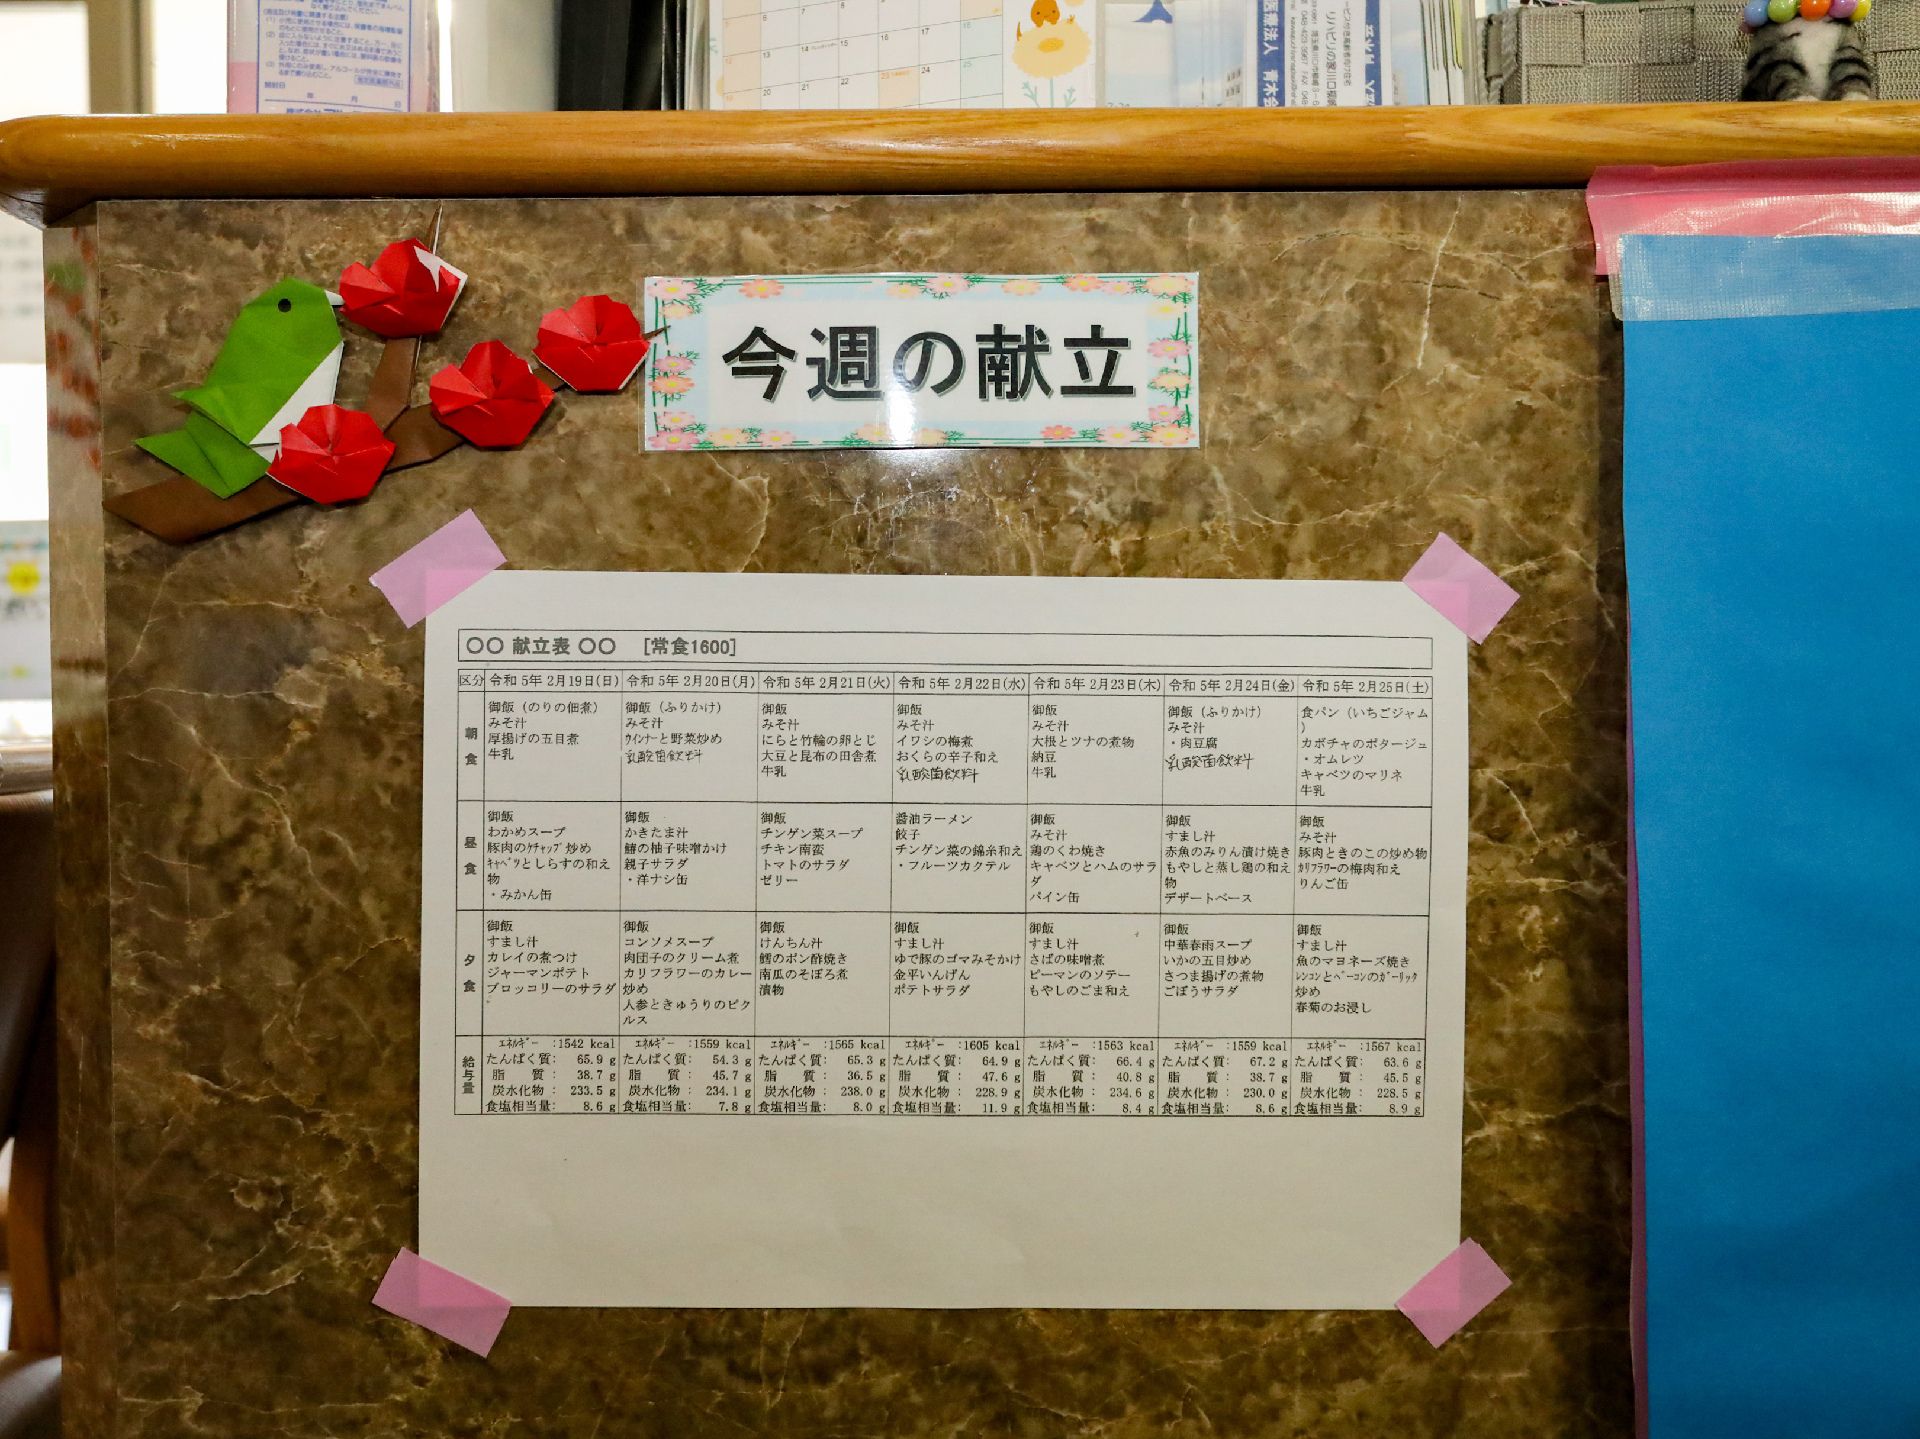 今週の献立
〇〇 献立表 〇〇 [常食1600]
区分 令和 5年 2月19日(日) 令和 5年 2月20日(月) 令和 5年 2月21日(火) 令和 5年 2月22日(水) 令和 5年 2月23日(木) 令和 5年 2月24日(金) 令和 5年 2月25日(土)
朝食
御飯（のりの佃煮）
みそ汁
厚揚げの五目煮
牛乳
御飯（ふりかけ）
みそ汁
ｳｲﾝﾅｰと野菜炒め
乳酸菌飲料
御飯
みそ汁
にらと竹輪の卵とじ
大豆と昆布の田舎煮
牛乳
御飯
みそ汁
イワシの梅煮
おくらの辛子和え
乳酸菌飲料
御飯
みそ汁
大根とツナの煮物
納豆
牛乳
御飯（ふりかけ）
みそ汁
・肉豆腐
乳酸菌飲料
食パン（いちごジャム
）
カボチャのポタージュ
・オムレツ
キャベツのマリネ
牛乳
昼食
御飯
わかめスープ
豚肉のｹﾁｬｯﾌﾟ炒め
ｷｬﾍﾞﾂとしらすの和え
物
・みかん缶
御飯
かきたま汁
鰆の柚子味噌かけ
親子サラダ
・洋ナシ缶
御飯
チンゲン菜スープ
チキン南蛮
トマトのサラダ
ゼリー
醤油ラーメン
餃子
チンゲン菜の錦糸和え
・フルーツカクテル
御飯
みそ汁
鶏のくわ焼き
キャベツとハムのサラ
ダ
パイン缶
御飯
すまし汁
赤魚のみりん漬け焼き
もやしと蒸し鶏の和え
物
デザートベース
御飯
みそ汁
豚肉ときのこの炒め物
ｶﾘﾌﾗﾜｰの梅肉和え
りんご缶
夕食
御飯
すまし汁
カレイの煮つけ
ジャーマンポテト
ブロッコリーのサラダ
御飯
コンソメスープ
肉団子のクリーム煮
カリフラワーのカレー
炒め
人参ときゅうりのピク
ルス
御飯
けんちん汁
鱈のポン酢焼き
南瓜のそぼろ煮
漬物
御飯
すまし汁
ゆで豚のゴマみそかけ
金平いんげん
ポテトサラダ
御飯
すまし汁
さばの味噌煮
ピーマンのソテー
もやしのごま和え
御飯
中華春雨スープ
いかの五目炒め
さつま揚げの煮物
ごぼうサラダ
御飯
すまし汁
魚のマヨネーズ焼き
ﾚﾝｺﾝとﾍﾞｰｺﾝのｶﾞｰﾘｯｸ
炒め
春菊のお浸し
給与量
ｴﾈﾙｷﾞｰ :1542 kcal ｴﾈﾙｷﾞｰ :1559 kcal ｴﾈﾙｷﾞｰ :1565 kcal ｴﾈﾙｷﾞｰ :1605 kcal ｴﾈﾙｷﾞｰ :1563 kcal ｴﾈﾙｷﾞｰ :1559 kcal ｴﾈﾙｷﾞｰ :1567 kcal
たんぱく質: 65.9 g たんぱく質: 54.3 g たんぱく質: 65.3 g たんぱく質: 64.9 g たんぱく質: 66.4 g たんぱく質: 67.2 g たんぱく質: 63.6 g
脂 質 : 38.7 g 脂 質 : 45.7 g 脂 質 : 36.5 g 脂 質 : 47.6 g 脂 質 : 40.8 g 脂 質 : 38.7 g 脂 質 : 45.5 g
炭水化物 : 233.5 g 炭水化物 : 234.1 g 炭水化物 : 238.0 g 炭水化物 : 228.9 g 炭水化物 : 234.6 g 炭水化物 : 230.0 g 炭水化物 : 228.5 g
食塩相当量: 8.6 g 食塩相当量: 7.8 g 食塩相当量: 8.0 g 食塩相当量: 11.9 g 食塩相当量: 8.4 g 食塩相当量: 8.6 g 食塩相当量: 8.9 g